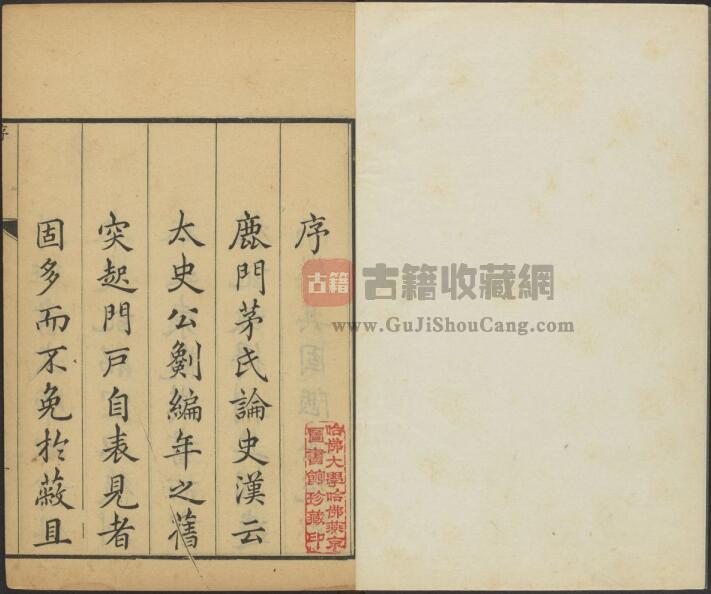 序
鹿門茅氏論史漢云
太史公劖編年之舊
突起門戸自表見者
固多而不免於蔽且
哈佛大學哈佛燕京
圖書館珍藏印
古籍
古籍收藏網
www.GuJiShouCang.com
序